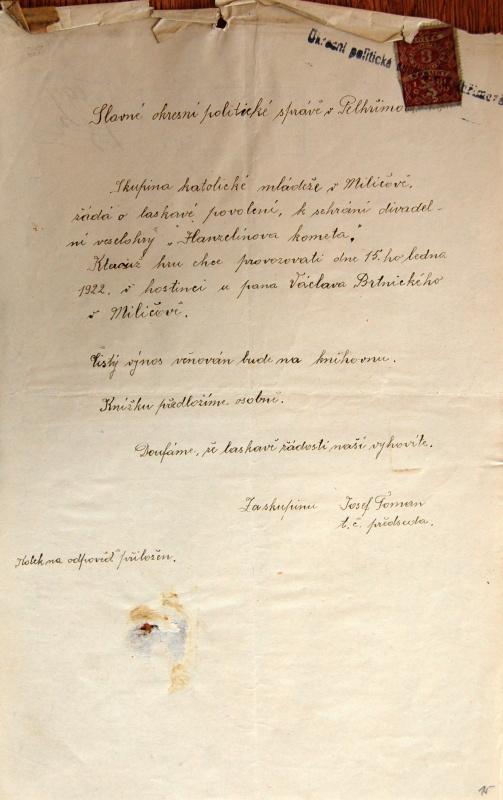 Okresní politická
Slavné okresní politické správě v Pelhřimo
Skupina katolické mládeže v Miličově,
žádá o laskavé povolení, k sehrání divadel-
ní veselohry „Hanzelínova kometa“.
hru chce provozovati dne 15. ho ledna
1922. v hostinci u pana Václava Brtnického
v Miličově.
Čistý výnos věnován bude na knihovnu.
Knížku předložíme osobně.
Doufáme, že laskavě žádosti naší vyhovíte.
Za skupinu Josef Toman
t. č. předseda.
Kolek na odpověď přiložen.